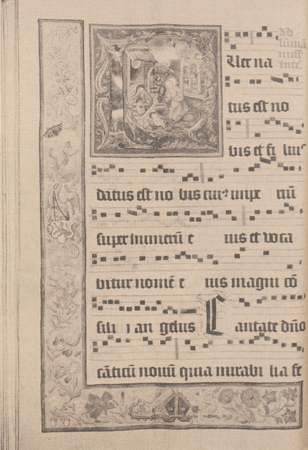 ad
PUer na
tus est no
bis et fi liuꝰ
datus est no bis cuiꝰ impe riū
super humerū e ius et voca
bitur nomē e ius magni cō
sili j an gelus Cantate dn̄o
cāticum nouū quia mirabi lia fe